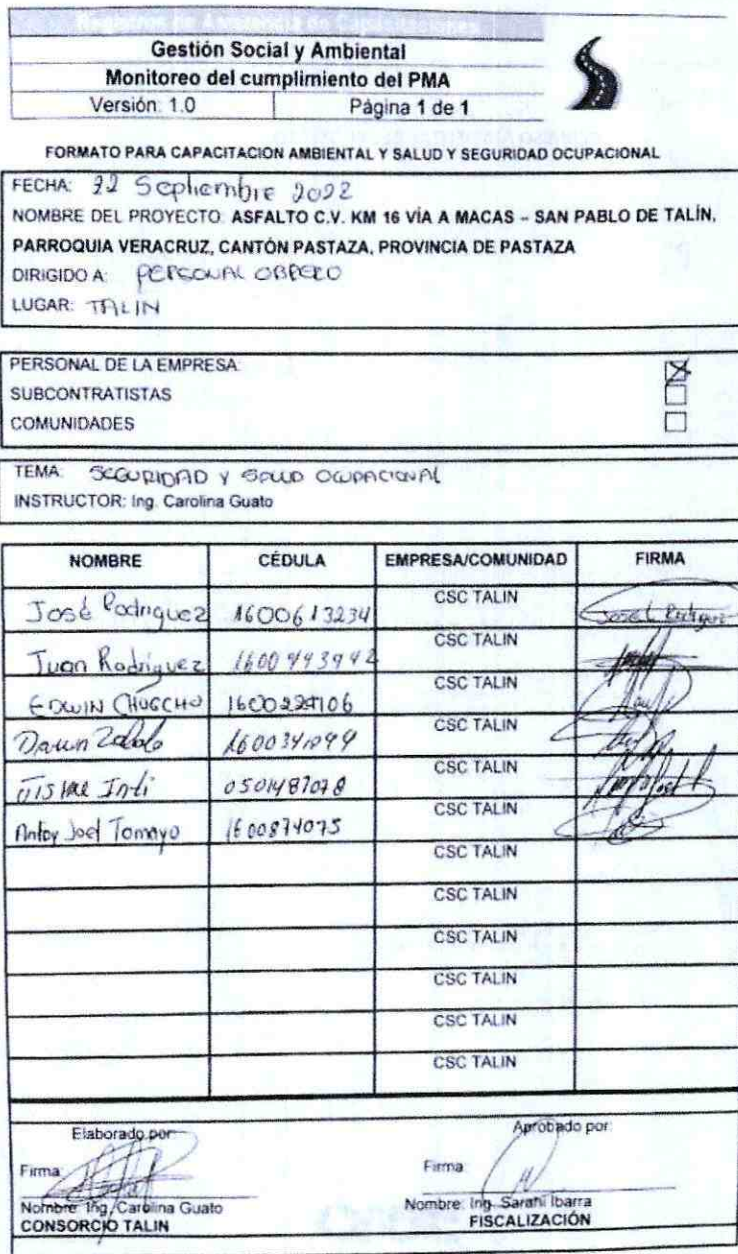 Registros de Asistencia de Capacitaciones
Gestión Social y Ambiental
Monitoreo del cumplimiento del PMA
Versión: 1.0 Página 1 de 1
FORMATO PARA CAPACITACION AMBIENTAL Y SALUD Y SEGURIDAD OCUPACIONAL
FECHA: 22 Septiembre 2022
NOMBRE DEL PROYECTO: ASFALTO C.V. KM 16 VÍA A MACAS – SAN PABLO DE TALÍN,
PARROQUIA VERACRUZ, CANTÓN PASTAZA, PROVINCIA DE PASTAZA
DIRIGIDO A: PERSONAL OBRERO
LUGAR: TALIN
PERSONAL DE LA EMPRESA:
SUBCONTRATISTAS
COMUNIDADES
TEMA: SEGURIDAD Y SALUD OCUPACIONAL
INSTRUCTOR: Ing. Carolina Guato
NOMBRE CÉDULA EMPRESA/COMUNIDAD FIRMA
José Rodriguez 1600613234 CSC TALIN José Rodriguez
Juan Rodriguez 1600443942 CSC TALIN
EDWIN CSC TALIN
CSC TALIN
Inti 0501487078 CSC TALIN
Joel Tamayo 1600874075 CSC TALIN
CSC TALIN
CSC TALIN
CSC TALIN
CSC TALIN
CSC TALIN
CSC TALIN
Elaborado por: Aprobado por:
Firma: Firma:
Nombre: Ing. Carolina Guato Nombre: Ing. Sarahi Ibarra
CONSORCIO TALIN FISCALIZACIÓN